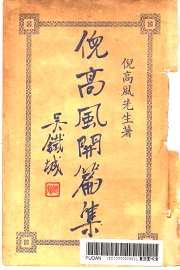 倪高風先生著
倪高風開篇集
吳鐵城
FUDAN